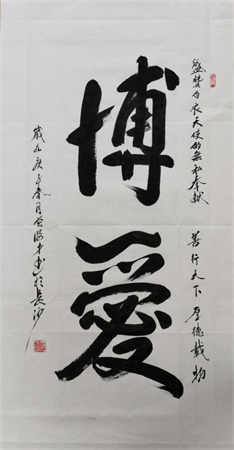 盛赞白衣天使的無私奉献 善行天下 厚德載物
博愛
庚子春月 書於長沙